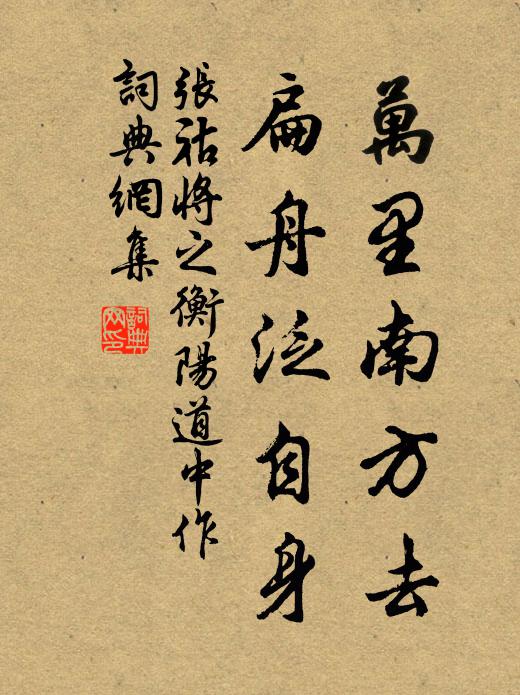 萬里南方去
扁舟泛自身
張祜將之衡陽道中作
詞典網集
詞典网印